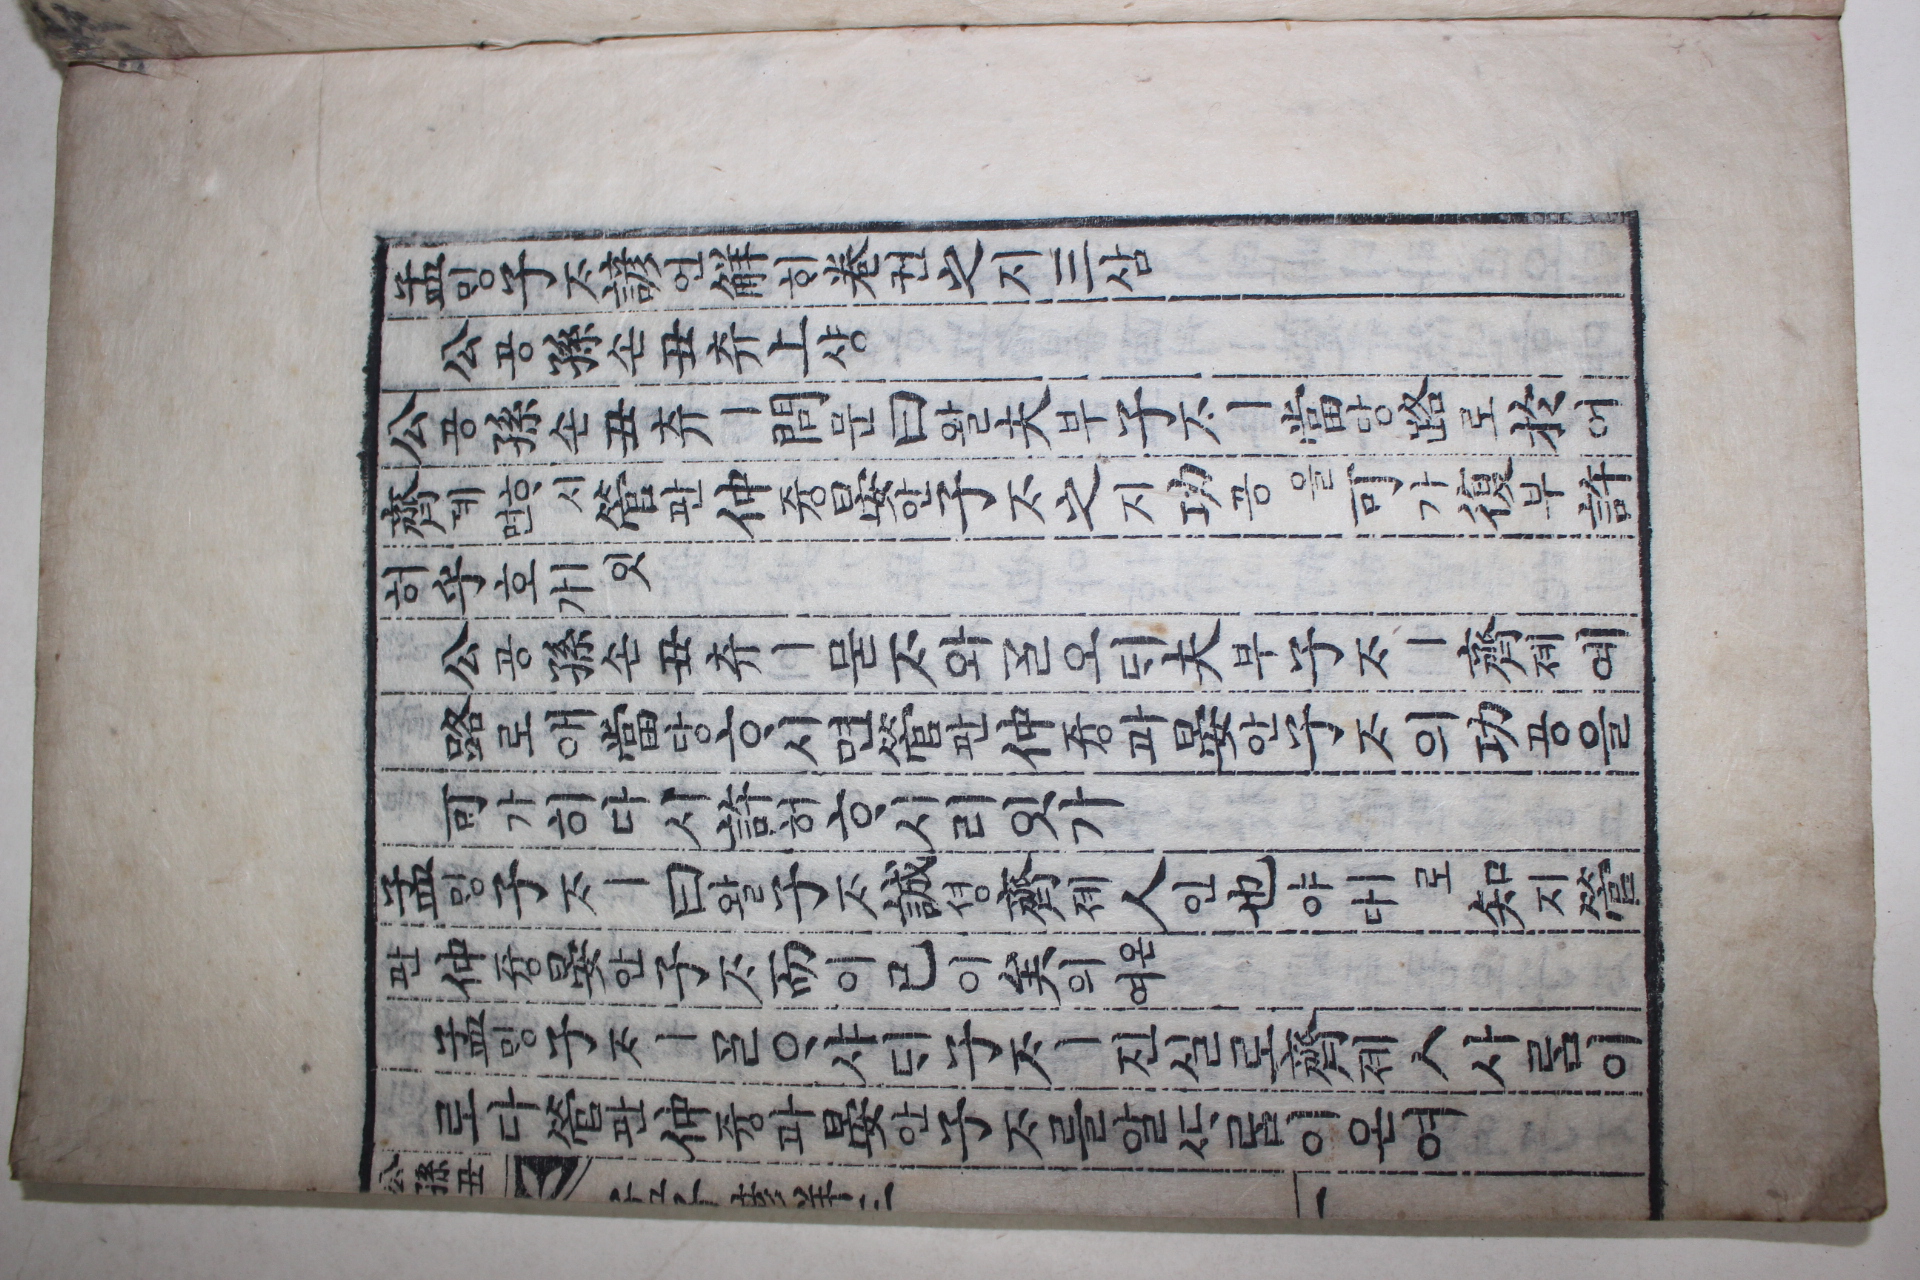 孟밍子ᄌᆞ諺언解ᄒᆡ卷권之지三삼
公공孫손丑츄上샹
公공孫손丑츄ㅣ問문曰왈夫부子ᄌᆞㅣ當당路로於어
齊졔ᄒᆞ시면管관仲즁晏안子ᄌᆞ之지功공을可가復부許
허乎호ㅣ잇가
公공孫손丑츄ㅣ묻ᄌᆞ와ᄀᆞᆯ오ᄃᆡ夫부子ᄌᆞㅣ齊졔예
路로애當당ᄒᆞ시면管관仲즁과晏안子ᄌᆞ의功공을
可가히다시許허ᄒᆞ시리잇가
孟밍子ᄌᆞㅣ曰왈子ᄌᆞ誠셩齊졔人인也야ㅣ로다知지管
관仲즁晏안子ᄌᆞ而이已이矣의온여
孟밍子ᄌᆞㅣᄀᆞᆯᄋᆞ샤ᄃᆡ子ᄌᆞㅣ진실로齊졔人사ᄅᆞᆷ이
로다管관仲즁과晏안子ᄌᆞᄅᆞᆯ알ᄯᆞᄅᆞᆷ이온여
公孫丑